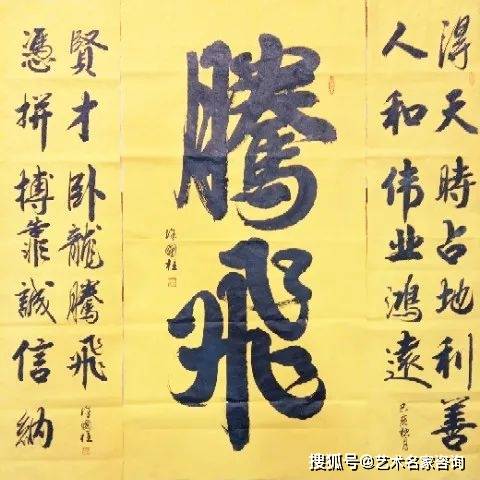 得天時占地利善
人和伟业鸿遠
己亥秋月
騰飛
國柱
憑拼搏靠誠信納
賢才卧龍騰飛
國柱
搜狐号@艺术名家咨询